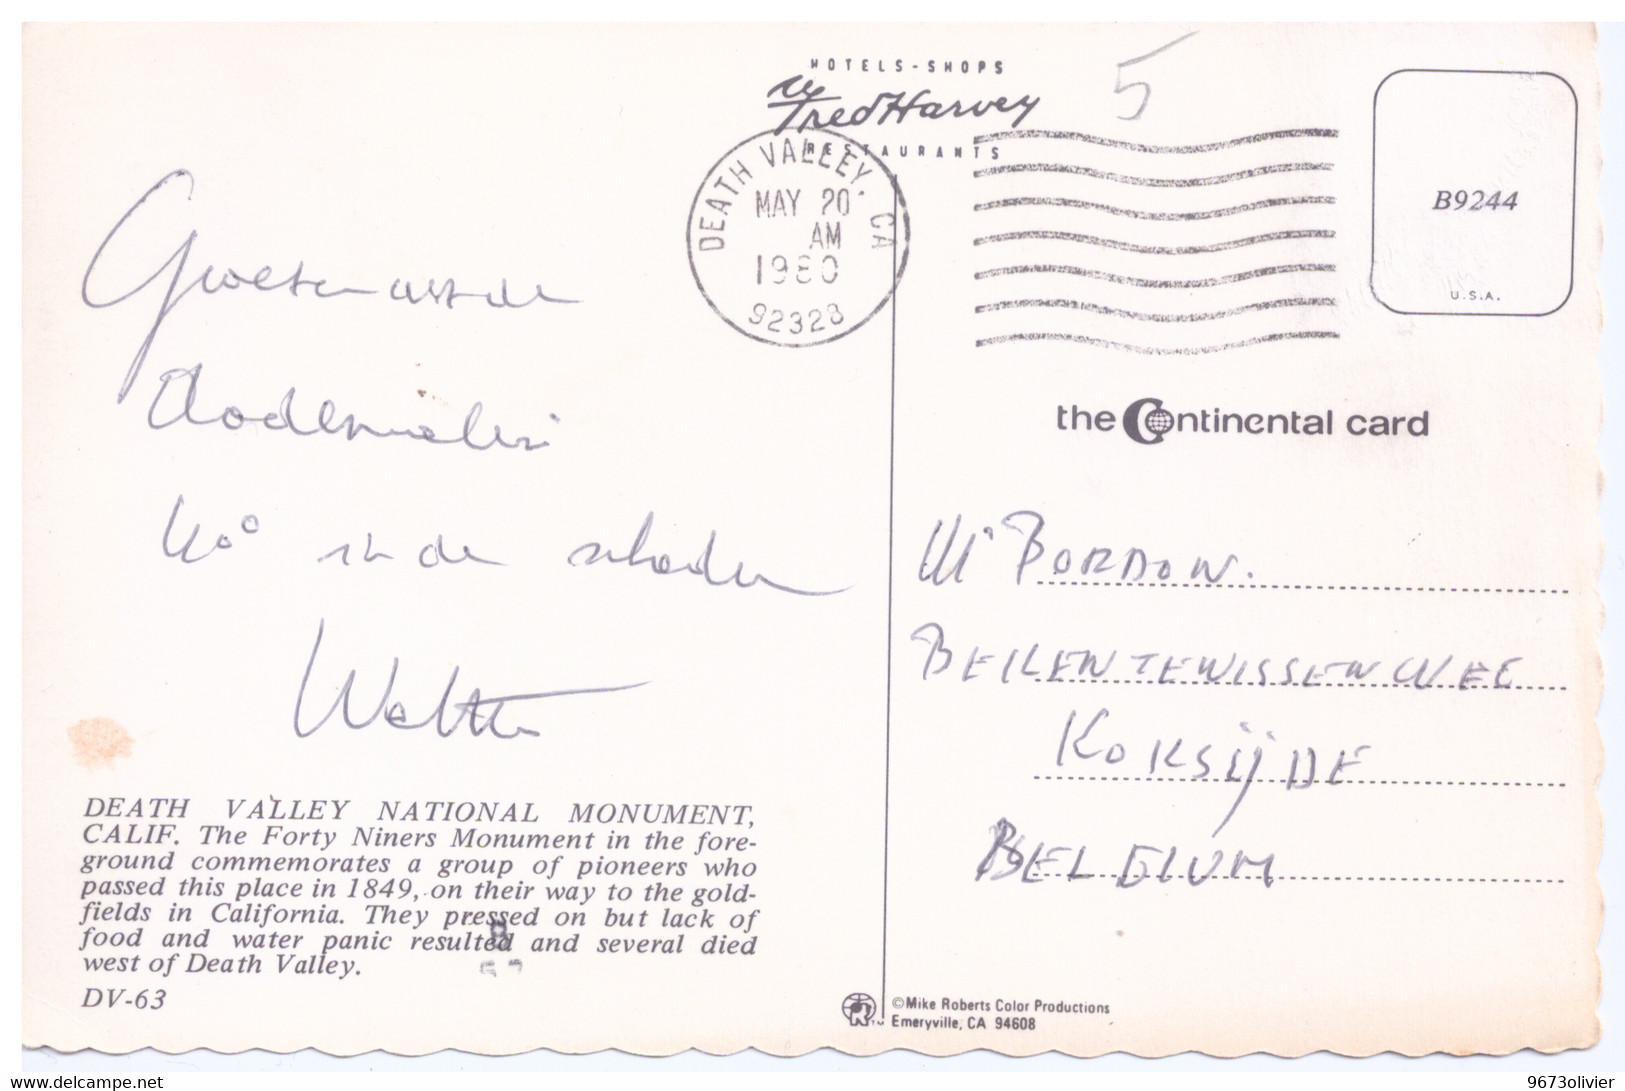 HOTELS-SHOPS
Fred Harvey
RESTAURANTS
5
DEATH VALLEY, CA
MAY 20
AM
1980
92328
B9244
U.S.A.
Groeten uit de
in de schaduw
Walter
the Continental card
Mr BORDON.
KOKSIJDE
BELGIUM
DEATH VALLEY NATIONAL MONUMENT,
CALIF. The Forty Niners Monument in the fore-
ground commemorates a group of pioneers who
passed this place in 1849, on their way to the gold-
fields in California. They pressed on but lack of
food and water panic resulted and several died
west of Death Valley.
DV-63
©Mike Roberts Color Productions
Emeryville, CA 94608
www.delcampe.net
9673olivier